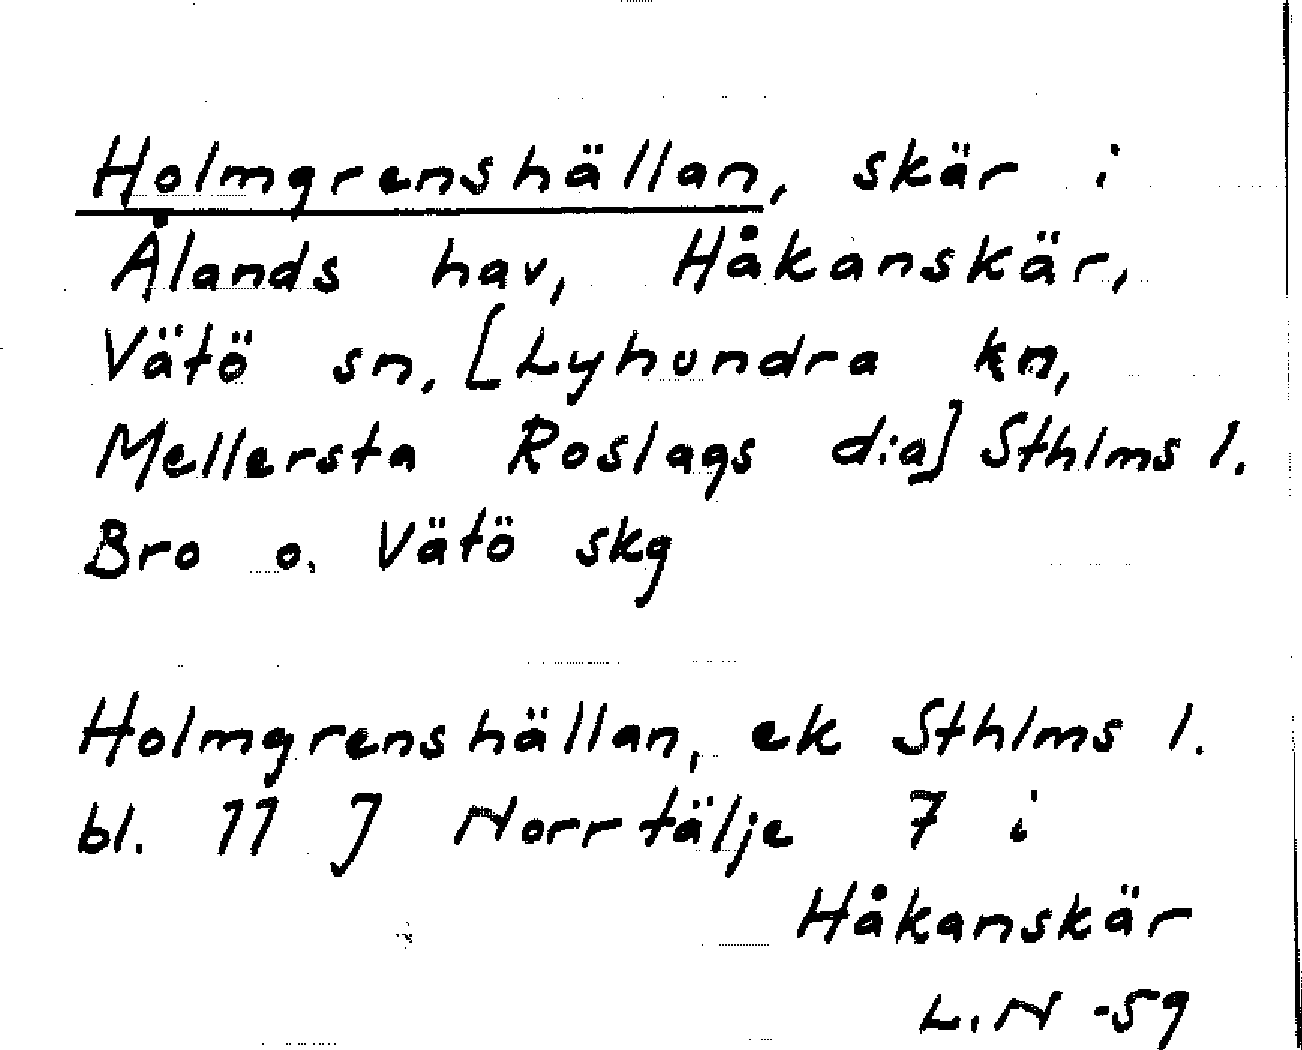 Holmgrenshällan, skär i
Ålands hav, Håkanskär,
Vätö sn, [Lyhundra kn,
Mellersta Roslags dia] Sthlms l.
Bro o. Vätö skg
Holmgrenshällan, ek Sthlms l.
bl. 11 J Norrtälje 7 i
Håkanskär
L.N -59